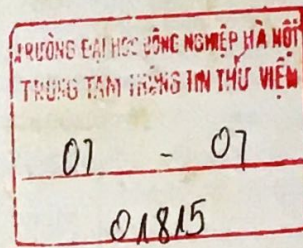 TRƯỜNG ĐẠI HỌC CÔNG NGHIỆP HÀ NỘI
TRUNG TÂM THÔNG TIN THƯ VIỆN
07 - 07
01815